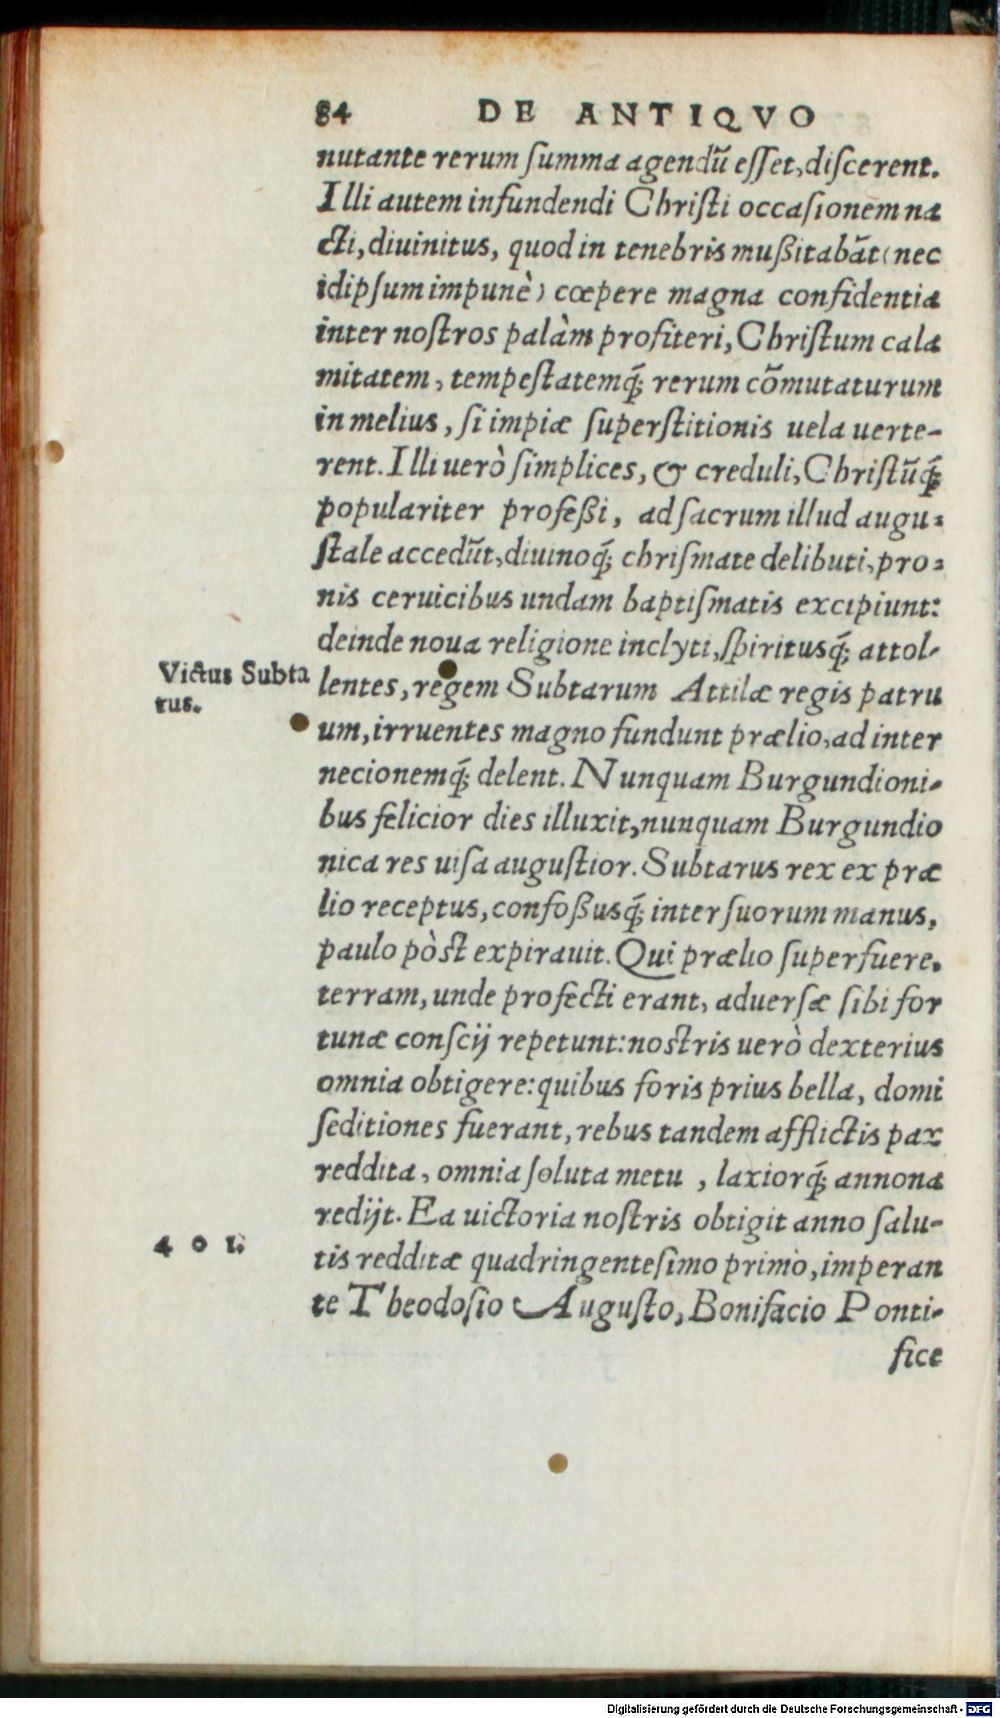 84 DE ANTIQVO
nutante rerum ſumma agendũ eſſet, diſcerent.
Illi autem infundendi Chriſti occaſionem na
cti, diuinitus, quod in tenebris mußitabãt (nec
idipſum impunè) cœpere magna confidentia
inter noſtros palàm profiteri, Chriſtum cala
mitatem, tempeſtatemq́; rerum cõmutaturum
in melius, ſi impiæ ſuperſtitionis uela uerte-
rent. Illi uerò ſimplices, & creduli, Chriſtũq́;
populariter profeßi, ad ſacrum illud augu-
ſtale accedũt, diuinoq́; chriſmate delibuti, pro-
nis ceruicibus undam baptiſmatis excipiunt:
deinde noua religione inclyti, ſpiritusq́; attol-
Victus Subta
tus.
lentes, regem Subtarum Attilæ regis patru
um, irruentes magno fundunt prælio, ad inter
necionemq́; delent. Nunquam Burgundioni-
bus felicior dies illuxit, nunquam Burgundio
nica res uiſa auguſtior. Subtarus rex ex præ
lio receptus, confoßusq́; inter ſuorum manus,
paulo pòst expirauit. Qui prælio ſuperfuere,
terram, unde profecti erant, aduerſæ ſibi for
tunæ conſcij repetunt: nostris uerò dexterius
omnia obtigere: quibus foris prius bella, domi
ſeditiones fuerant, rebus tandem afflictis pax
reddita, omnia ſoluta metu, laxiorq́; annona
redijt. Ea uictoria noſtris obtigit anno ſalu-
401.
tis redditæ quadringenteſimo primo, imperan
te Theodoſio Auguſto, Bonifacio Ponti-
fice
Digitalisierung gefördert durch die Deutsche Forschungsgemeinschaft - DFG